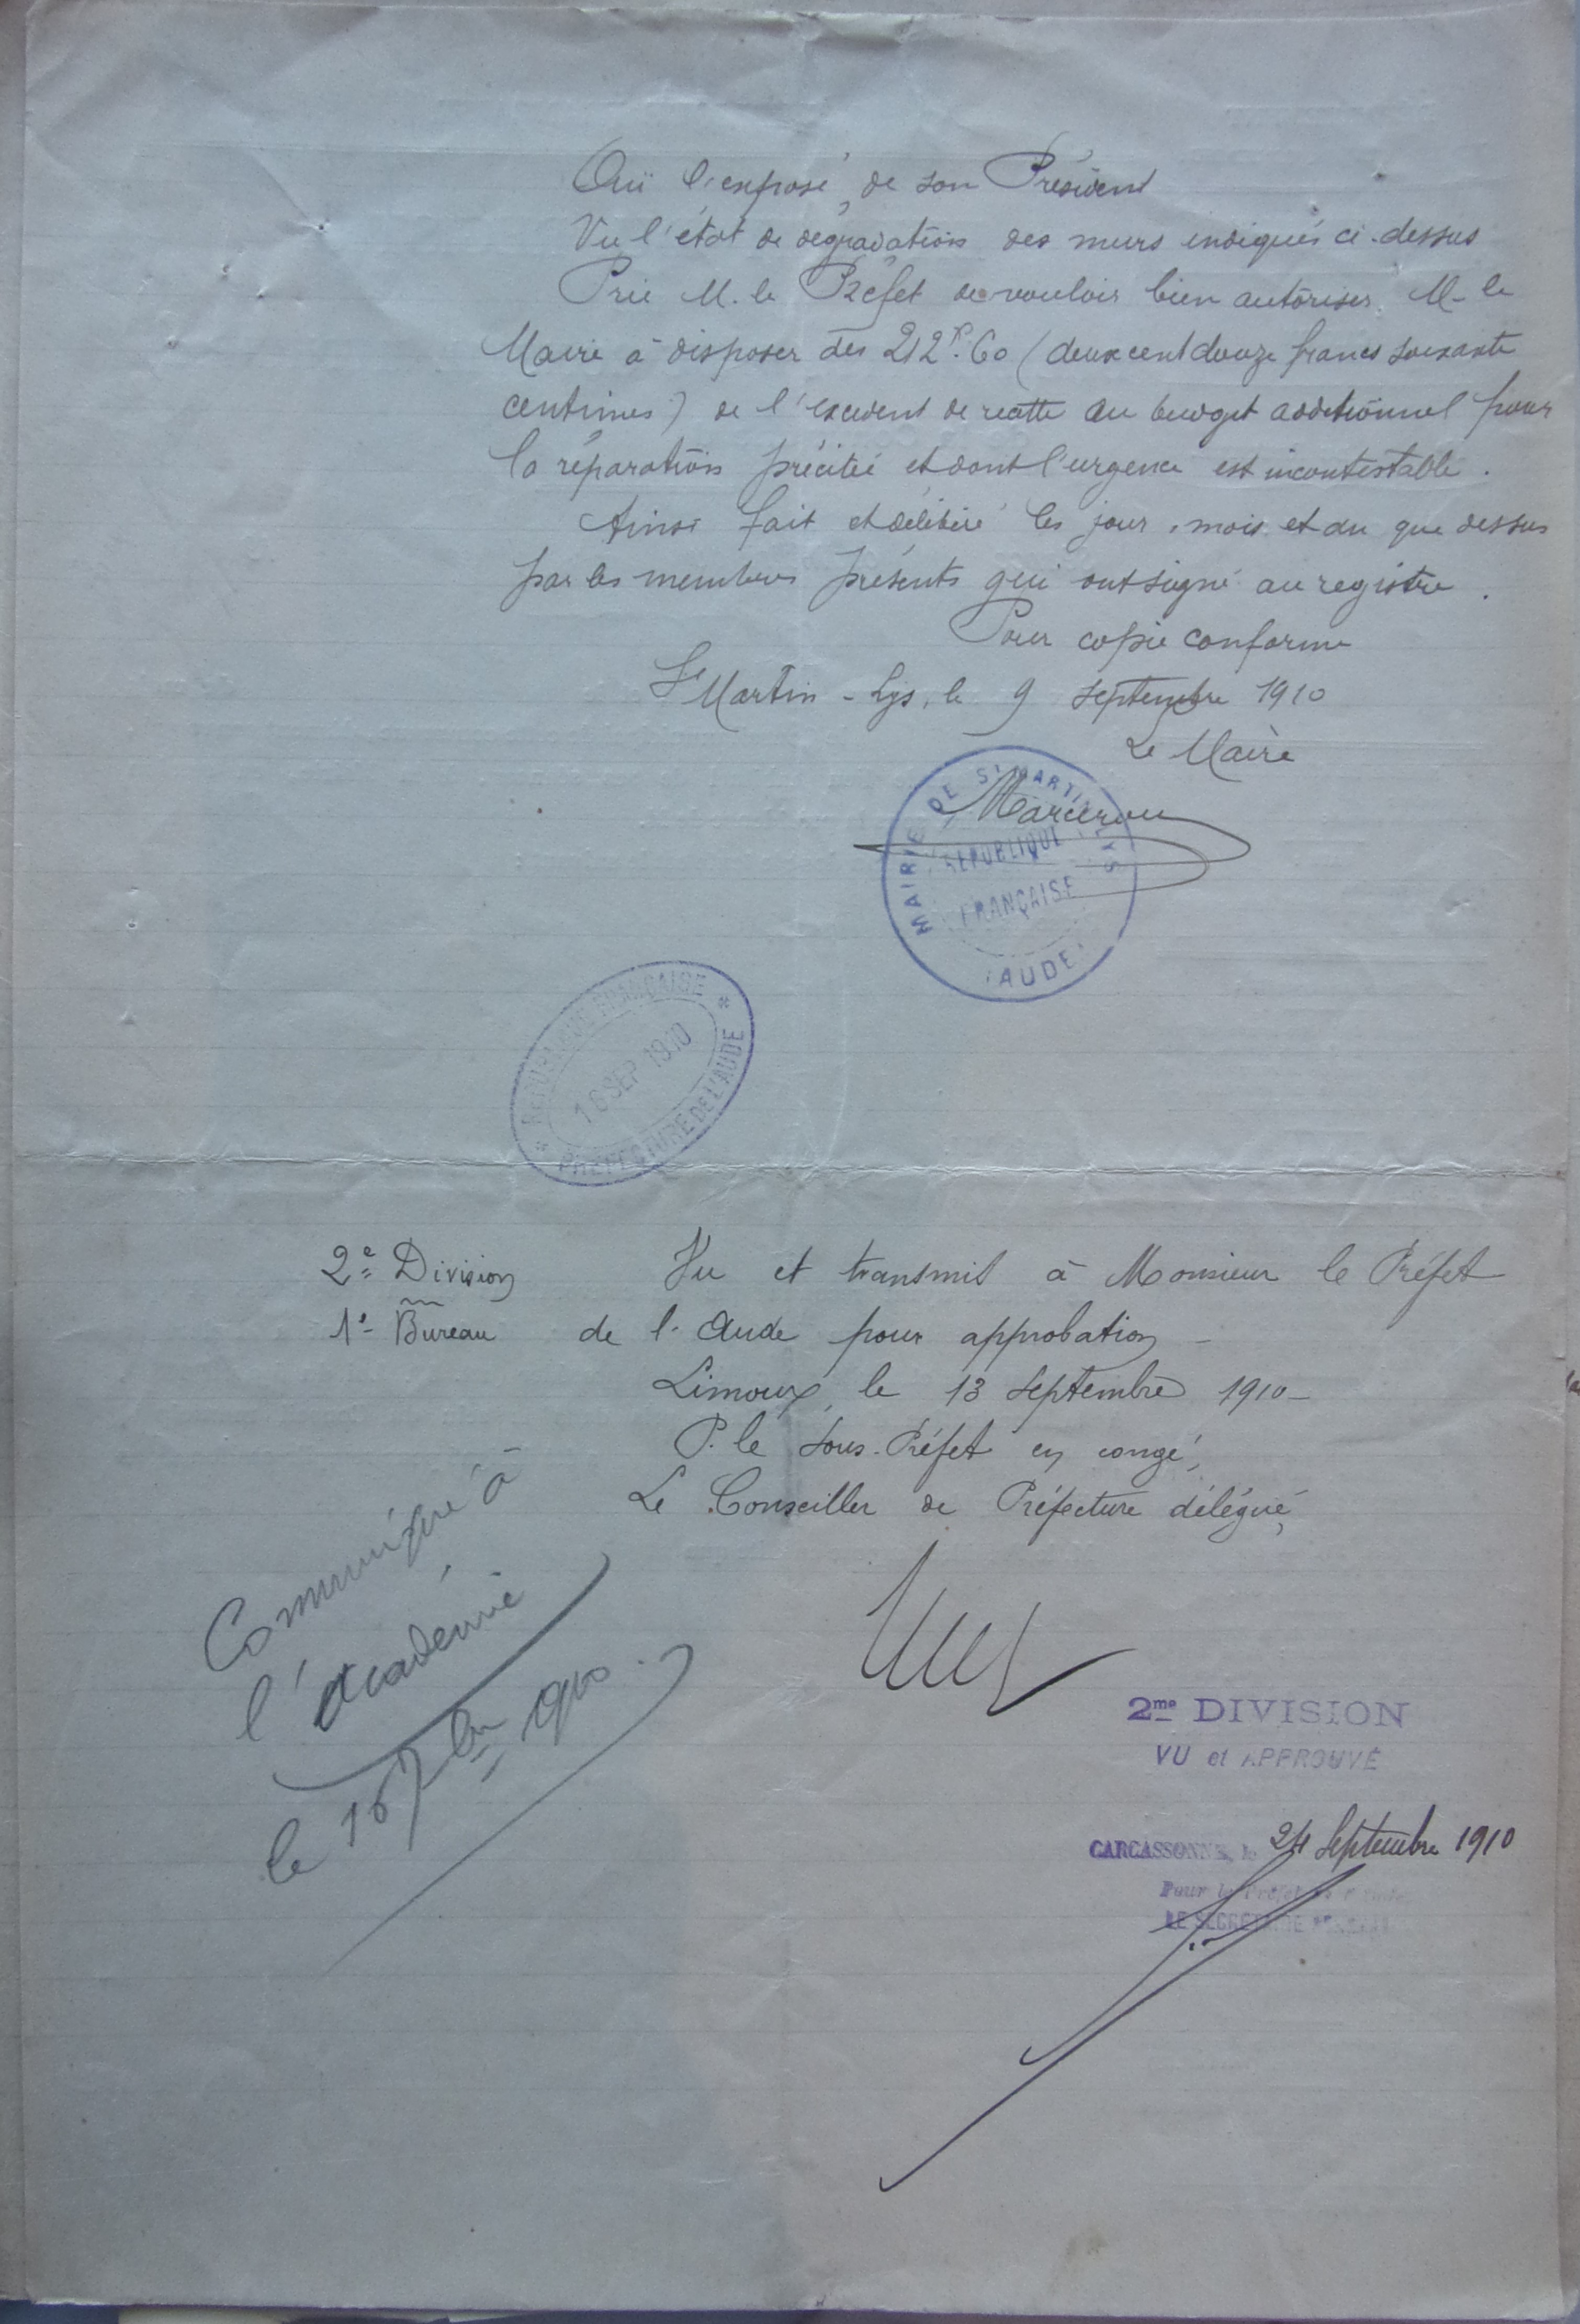 Ouï l'exposé de son Président
Vu l'état de dégradation des murs indiqués ci-dessus
Prie M. le Préfet de vouloir bien autoriser M. le
Maire à disposer des 212f.60 (deux cent douze francs soixante
centimes) de l'excédent de recette au budget additionnel pour
la réparation précitée et dont l'urgence est incontestable.
Ainsi fait et délibéré les jour, mois et an que dessus
par les membres présents qui ont signé au registre.
Pour copie conforme
St Martin-Lys, le 9 Septembre 1910
Le Maire
MAIRIE DE ST MARTIN LYS
RÉPUBLIQUE
FRANÇAISE
AUDE
RÉPUBLIQUE FRANÇAISE
SEP 1910
PRÉFECTURE DE L'AUDE
2e Division Vu et transmis à Monsieur le Préfet
1e Bureau de l'Aude pour approbation
Limoux, le 13 Septembre 1910
P. le Sous-Préfet en congé,
Le Conseiller de Préfecture délégué,
Communiqué à
l'Académie
le 16 7bre 1910.
2me DIVISION
VU et APPROUVÉ
CARCASSONNE, le 24 Septembre 1910
Pour le Préfet
LE SECRÉTAIRE